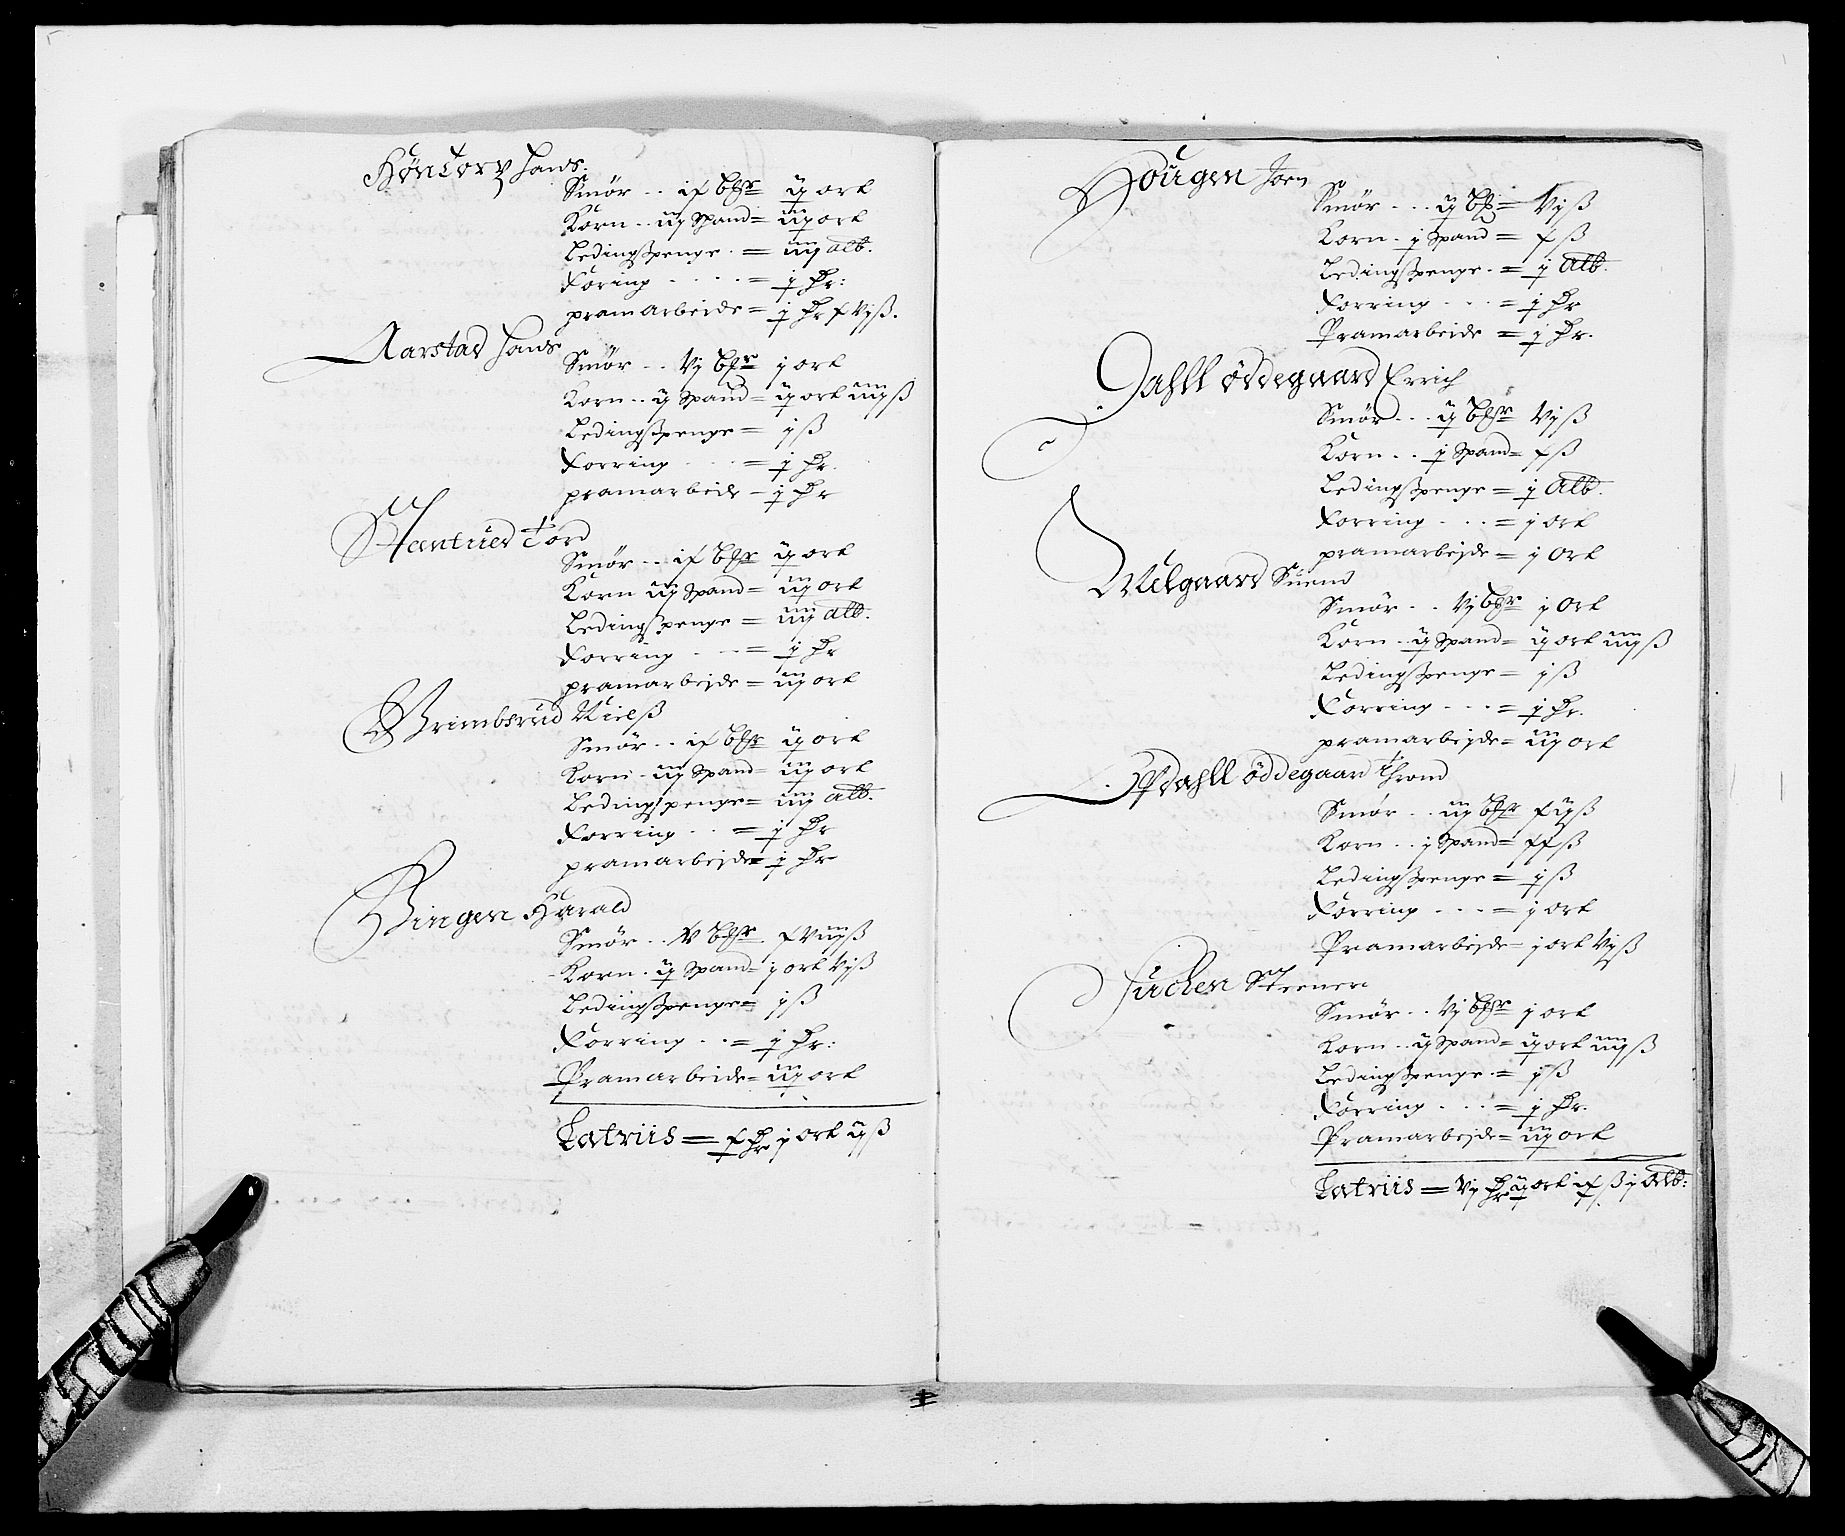 Høntorp Hans.
Smør .. ix bßr ij ort
Korn .. iij Spand = iij ort
Ledingßpenge . = iiij alb.
Foring . . . . = j Dr:
pramarbeide = j Dr xvjß.
Aarstad Hans
Smør .. vj bßr j ort
Korn .. ij Spand = ij ort iiijß
Ledingßpenge = jß
Forring . . . = j Dr.
pramarbeide = j Dr
Tord
Smør ... ix bßr ij ort
Korn iij Spand = iij ort
Ledingßpenge = iiij alb.
Forring . . . = j Dr
pramarbejde = iij ort
Grimbsrud Nielß
Smør .. ix bßr ij ort
Korn . iij Spand = iij ort
Ledingßpenge = iiij alb.
Forring . . = j Dr
pramarbejde = j Dr
Bingen Harald
Smør .. v bßr. xviijß
Korn . ij Spand = j ort vjß
Ledingßpenge = jß
Forring . . = j Dr:
Pramarbeide = iij ort
Latriis = x Dr j ort ijß
Hougen Joen
Smør ... ij bß = vjß
Korn . j Spand = xß
Ledingßpenge . = j Alb.
Forring . . . = j Dr
Pramarbeide = j Dr.
Dahll øddegaard Errich
Smør ... ij bßr vjß
Korn .. j Spand = xß
Ledingßpenge = j Alb.
Forring . . . = j ort
pramarbejde = j Ort
Mælgaard Suend
Smør .. vj bßr j Ort
Korn .. ij Spand = ij ort iiijß
Ledingßpenge = jß
Forring . . . = j Dr.
pramarbejde = iij ort
Opdahll øddegaard Thrond
Smør .. iij bßr xijß
Korn .. j Spand = xxß
Ledingßpenge = jß
Forring . . . = j ort
Pramarbejde = j ort vjß
Steener
Smør .. vj bßr j ort
Korn .. ij Spand = ij ort iiijß
Ledingßpenge . = jß
Forring . . . = j Dr.
Pramarbejde = iij ort
Latriis = vj Dr ij ort ixß j Alb: